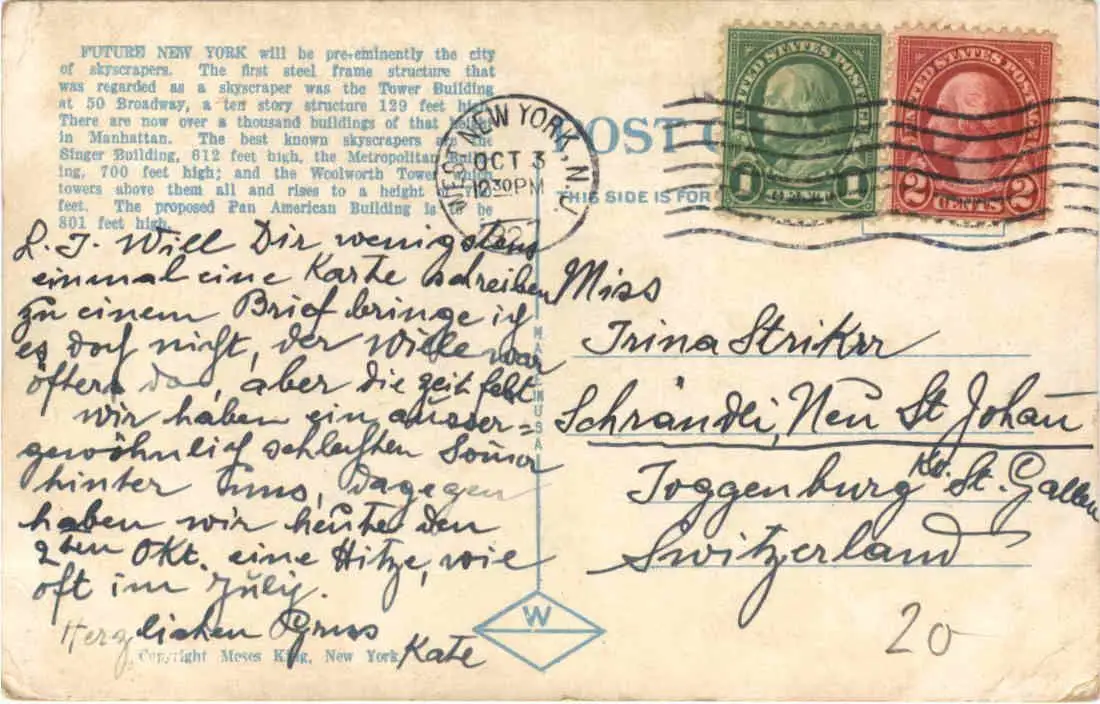 FUTURE NEW YORK will be pre-eminently the city
of skyscrapers. The first steel frame structure that
was regarded as a skyscraper was the Tower Building
at 50 Broadway, a ten story structure 129 feet high.
There are now over a thousand buildings of that
in Manhattan. The best known skyscrapers are the
Singer Building, 612 feet high, the Metropolitan Build-
ing, 700 feet high; and the Woolworth Tower which
towers above them all and rises to a height
feet. The proposed Pan American Building is to be
801 feet high.
WEST NEW YORK, N.J.
OCT 3
12 30 PM
POST
THIS SIDE IS FOR
UNITED STATES POSTAGE
1 1
UNITED STATES POSTAGE
2 CENTS 2
L. I. Will Dir wenigstens
einmal eine Karte schreiben
zu einem Brief bringe ich
es doch nicht, der Wille war
öfters da, aber die Zeit fehlt
wir haben ein ausser=
gewöhnlich schlechten Somer
hinter uns, dagegen
haben wir heute den
2ten Okt. eine Hitze, wie
oft im July.
Herzlichen Gruss
Kate
Miss
Irina Strikrr
Schrändli, Neu St Johan
Toggenburg Kt. St. Gallen
Switzerland
20
MADE IN USA
W
Copyright Moses King, New York